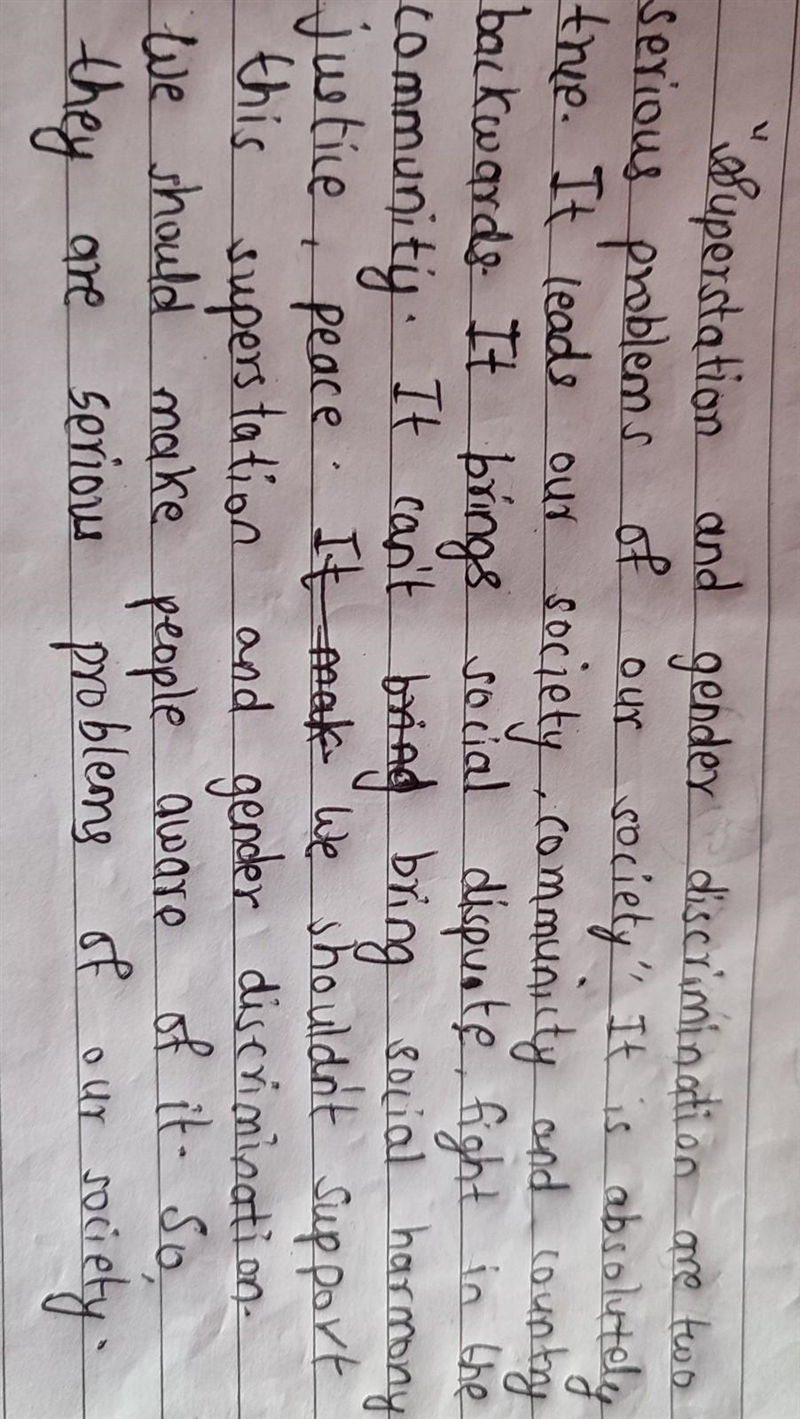 "Superstation and gender discrimination are two
serious problems of our society" It is absolutely
true. It leads our society, community and country
backwards. It brings social dispute, fight in the
community. It can't bring bring social harmony
justice, peace. It mak We shouldn't support
this superstation and gender discrimination.
We should make people aware of it. So,
they are serious problems of our society.